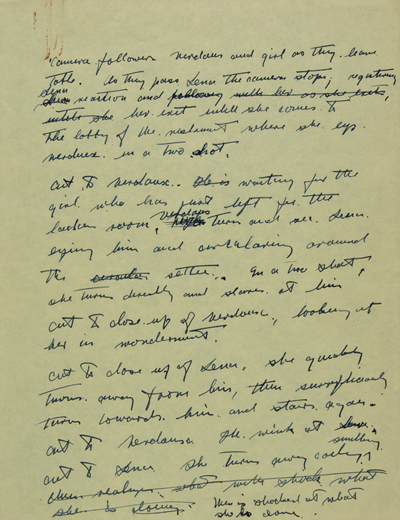 Camera follows Verdoux and girl as they leave
table. As they pass Lena the camera stops, registering
Lena reaction and following with her as she exits,
until she her exit until she comes to
the lobby of the restaurant where she eys
Verdoux in a two shot.
cut to Verdoux.. He is waiting for the
girl who has just left for the
room, Verdoux turns and sees Lena.
eying him and circulating around
the circular settee.. In a two shot,
she turns directly and stares at him
cut to close up of Verdoux, looking at
her in wonderment.
cut to close up of Lena. she quickly
turns away from him, then
turns towards him and stares again.
cut to Verdoux He winks at Lena.
cut to Lena she turns away smiling
then realizes what with shock what
she is doing: then is shocked at what
she is done.